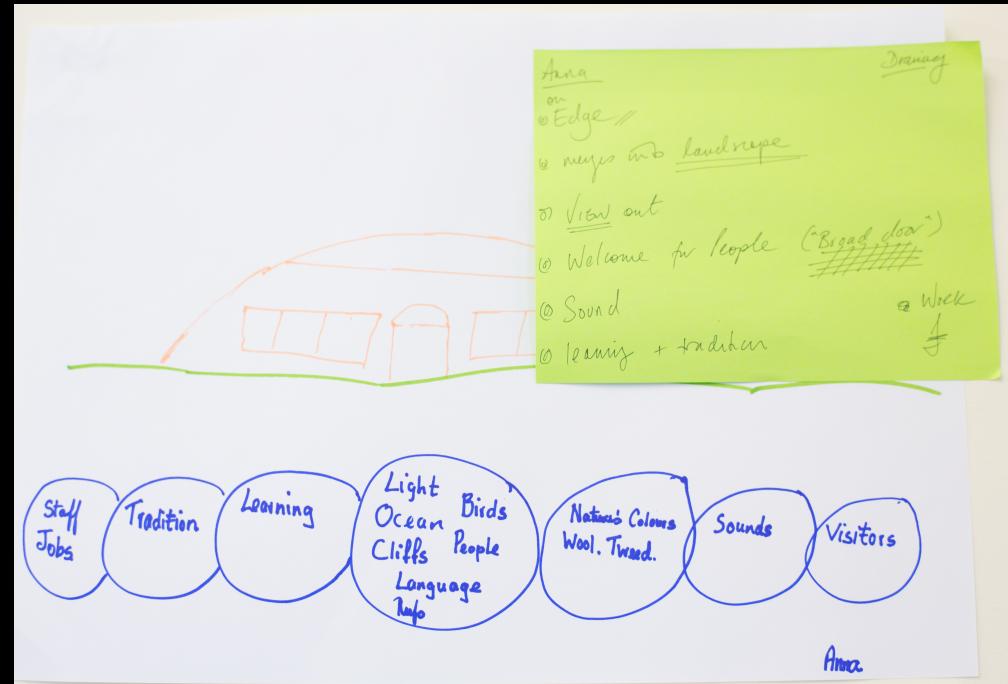 Anna
Drawing
on
Edge
merges into landscape
View out
Welcome for People ("Broad door")
Sound
Work
learning + tradition
Staff
Jobs
Tradition
Learning
Light
Birds
Ocean
Cliffs
People
Language
Info
Nature's Colours
Wool. Tweed.
Sounds
Visitors
Anna